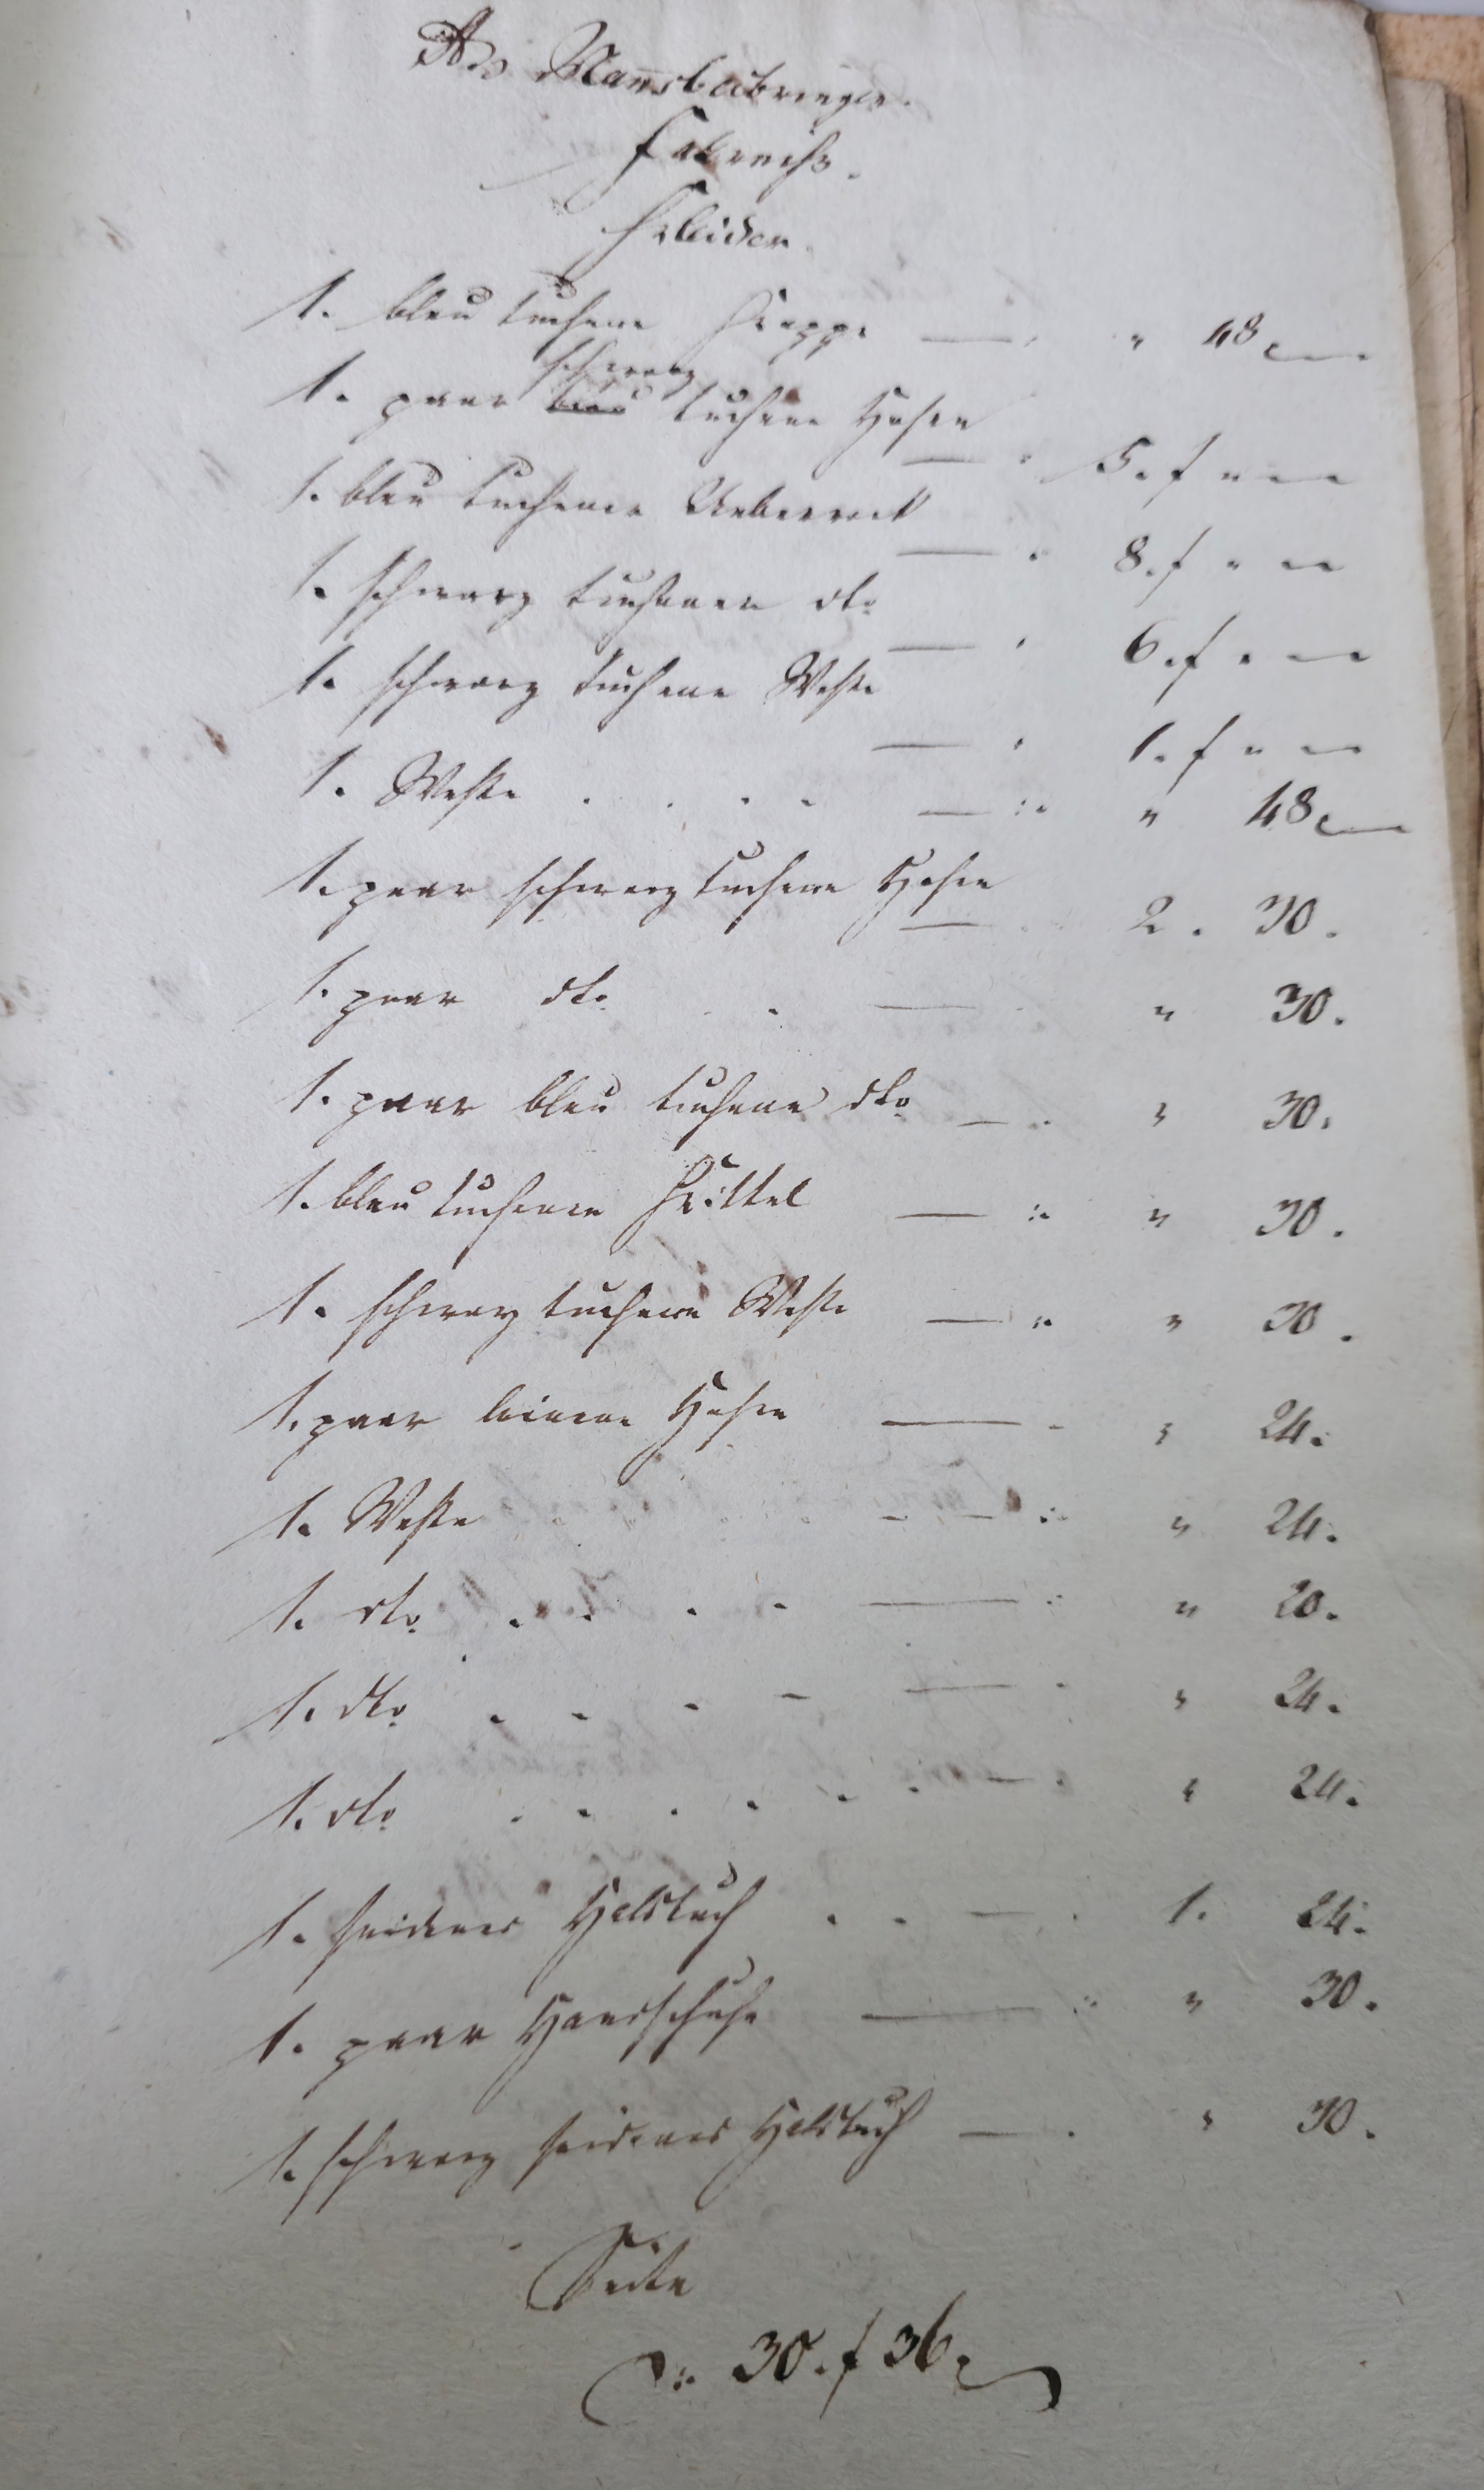 Des Mannsbeibringen.
Fahrniß.
Kleider.
1. bleu tuchene Kappe — " 48 x
schwarz
1. paar bleu tuchene Hosen — 5. f " —
1. bleu tuchener Ueberrock — 8. f " —
1. schwarz tuchener dto — 6. f " —
1. schwarz tuchene Weste — 1. f " —
1. Weste . . . . — " 48 x
1. paar schwarz tuchene Hosen — 2. 30.
1. paar dto . . — " 30.
1. paar bleu tuchene dto — " 30.
1. bleu tuchener Kittel — " 30.
1. schwarz tuchene Weste — " 30.
1. paar leinene Hosen — " 24.
1. Weste — " 24.
1. dto . . . . — " 20.
1. dto . . . . — " 24.
1. dto . . . . . . — " 24.
1. seidenes Halstuch . . — 1. 24.
1. paar Handschuhe — " 30.
1. schwarz seidenes Halstuch — " 30.
Seite
30. f 36 x